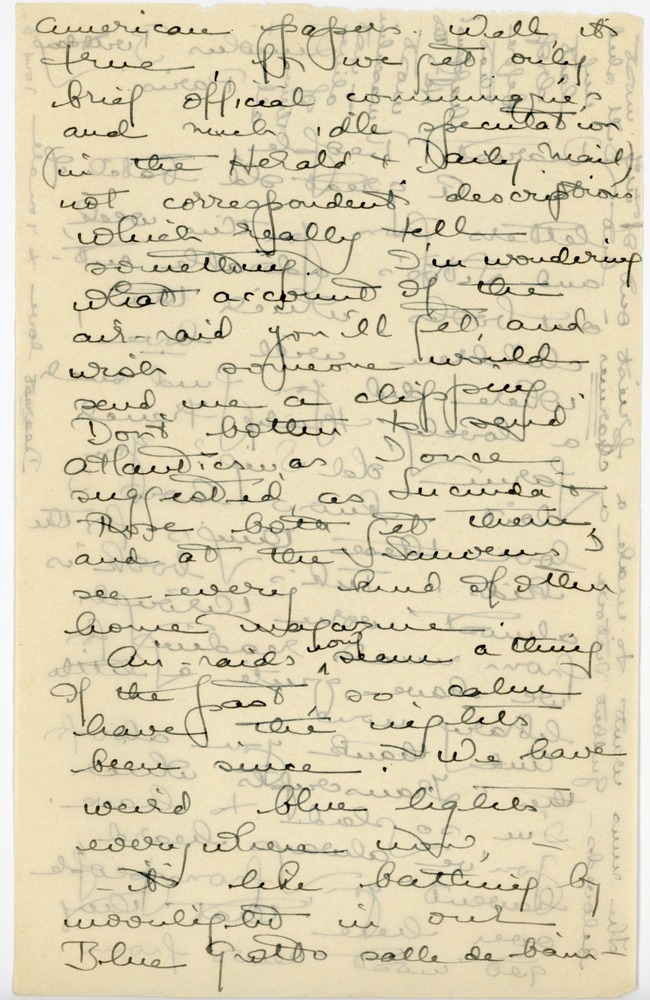 American papers. Well, it's
true, for we get only
brief official communiqué's
and much idle speculation
(in the Herald + Daily Mail)
not correspondents' descriptions
which really tell
something. I'm wondering
what account of the
air-raid you'll get, and
wish someone would
send me a clipping.
Don't bother to send
Atlantics, as I once
suggested, as Lucinda +
Rose both get them,
and at the I
see every kind of other
home magazine.
Air-raids now seem a thing
of the past, so calm
have the nights
been since. We have
weird blue lights
everywhere now, —
— it's like bathing by
moonlight in our
Blue Grotto salle de bain —